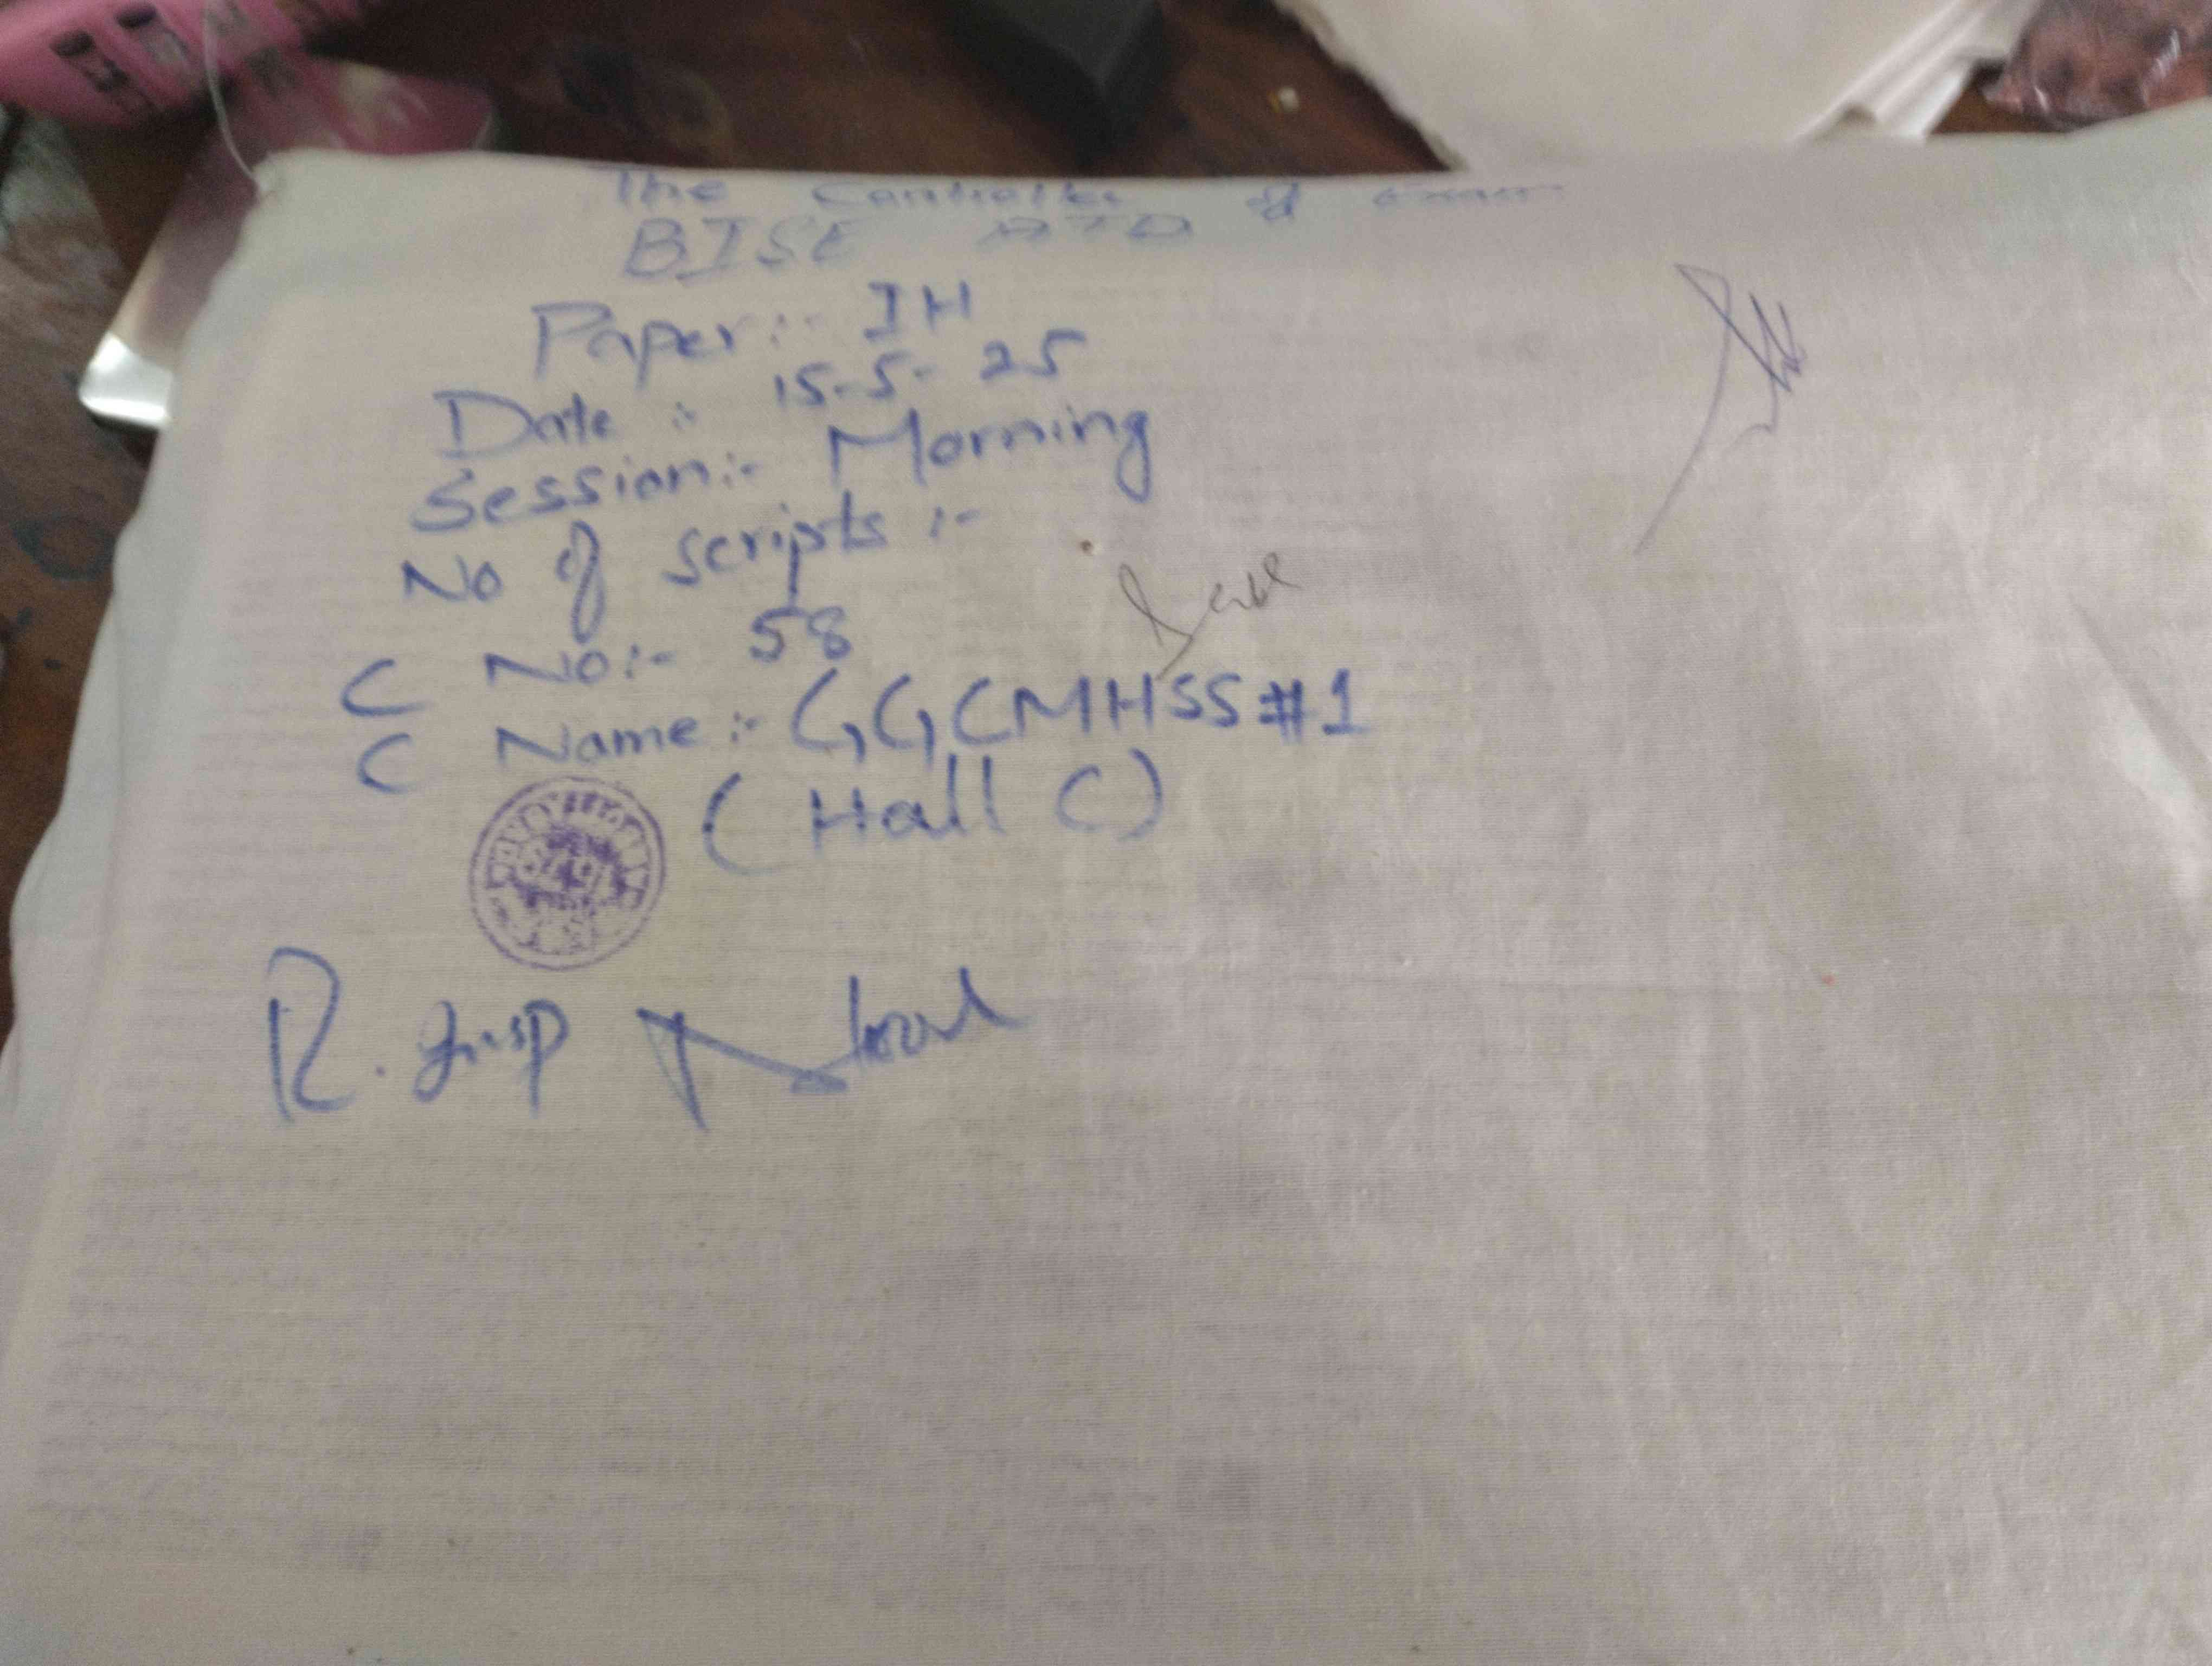 The Controller of Exam
BISE ATD
Paper:- IH
Date :- 15-5-25
Session:- Morning
No of scripts :-
C No:- 58
C Name:- GGCMHSS#1
(Hall C)
R.